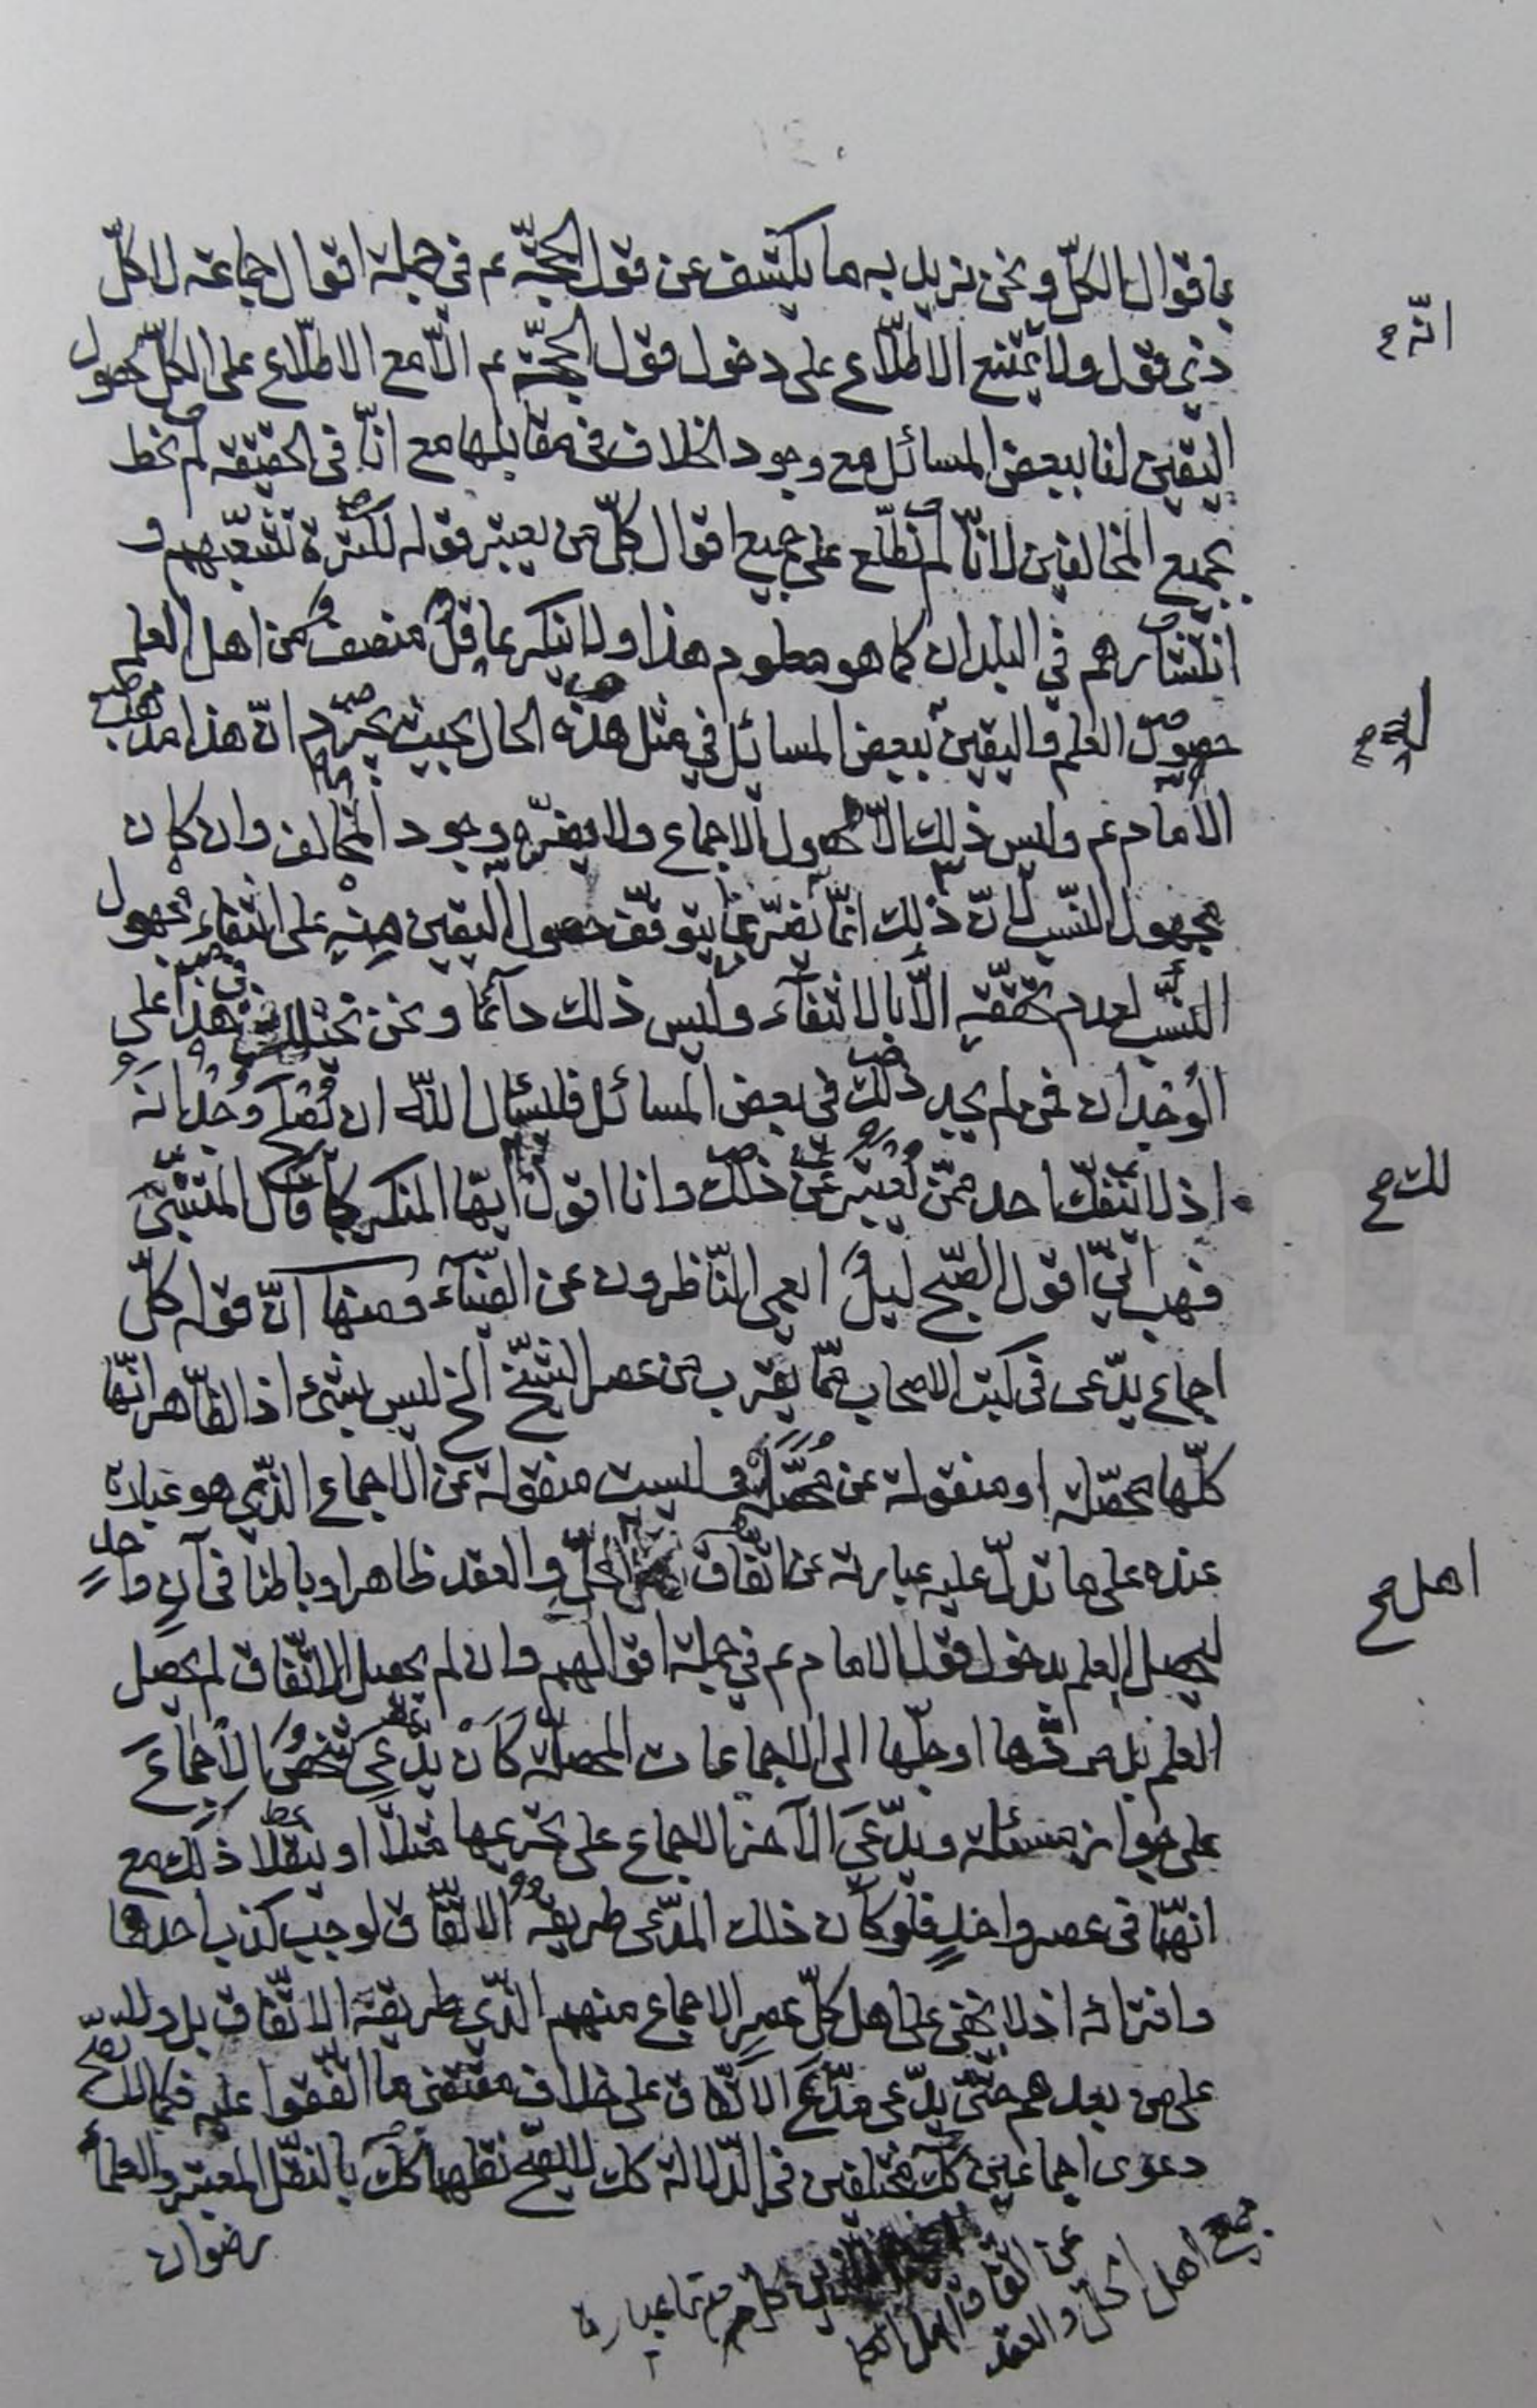 باقوال الكلّ ونحن نريد به ما يكشف عن قول الحجّة عم في جملة اقوال جماعة لا كلّ
ذي قول ولا يمتنع الاطّلاع على دخول قول الحجّة عم الّا مع الاطّلاع على الكلّ لحصول
اليقين لنا ببعض المسائل مع وجود الخلاف في مقابلها مع انّا في الحقيقة لم نحط
بجميع المخالفين لانّا لم نطّلع على جميع اقوال كلّ من يعتبر قوله لكثرة تشعّبهم و
انتشارهم في البلدان كما هو معلوم هذا ولا ينكر عاقل منصف من اهل العلم
حصول العلم واليقين ببعض المسائل في مثل هذه الحال بحيث يجزم انّ هذا مذهب
الامام عم وليس ذلك الّا لحصول الاجماع ولا يضرّه وجود المخالف وان كان
مجهول النسب لانّ ذلك انّما يضرّ بما يتوقّف حصول اليقين منه على انتفاء مجهول
النسب لعدم تحقّقه الّا بالانتفاء وليس ذلك دائما ونحن هذا على
الوجدان فمن لم يجد ذلك في بعض المسائل فليسئل الله ان وجدانه
اذ لا ينفكّ احد ممّن يعتبر عن ذلك وانا اقول ايّها المنكر كما قال المتنبّي
فهب انّي اقول الصّبح ليل ايعمى النّاظرون عن الضّياء ومنها انّ قوله كلّ
اجماع يدّعى في كتب الاصحاب ممّا يقرب من عصر الشّيخ الخ ليس بشيء اذ الظّاهر انّها
كلّها محصّلة او منقولة عن محصّل وليست منقولة عن الاجماع الذّي هو عبارة
عنده على ما تدلّ عليه عبارته عن اتّفاق الحلّ والعقد ظاهرا وباطنا في آن واحد
ليحصل العلم بدخول قول الامام عم في جملة اقوالهم وان لم يحصل الاتّفاق لم يحصل
العلم بل مردّها او جلّها الى الاجماعات المحصّلة كأن يدّعي شخص الاجماع
على جواز مسئلة ويدّعي الآخر الاجماع على تحريمها مثلا او ينقلا ذلك مع
انهما في عصر واحد فلو كان ذلك المدّعى طريقه الاتّفاق لوجب كذب احدهما
وافترائه اذ لا يخفى على اهل كلّ عصر الاجماع منهم الذّي طريقة الاتّفاق بل ولا
على من بعدهم حتّى يدّعي مدّعي الاتّفاق على خلاف مقتضى ما اتّفقوا عليه فكما لا يصحّ
دعوى اجماعين كك مختلفين في الدّلالة كك لا يصحّ نقلهما كك بالنقل المعتبر والعلماء
رضوان
انّه صح
لك صح
اهل صح
جميع اهل الحلّ والعقد
عن اتّفاق اهل
عبارة